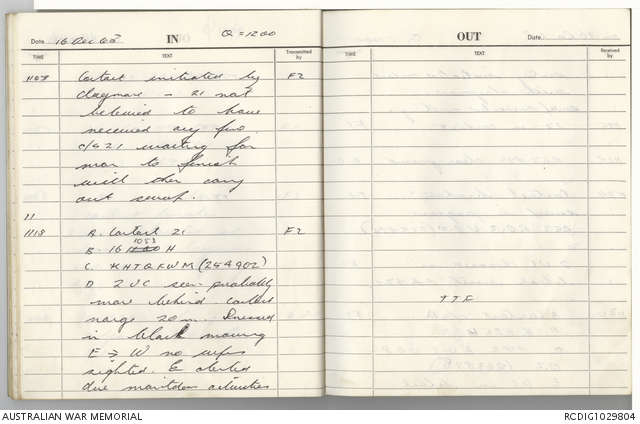 Date 16 Dec 68 IN Q = 1200
TIME TEXT Transmitted by
1107 Contact initiated by F2
claymore - 21 not
believed to have
received any fire
c/s 21 waiting for
mor to finish
will then carry
out sweep.
11
1118 A. Contact 21 F2
1053
B. 16 H
C. KHTQFWM (244902)
D 2 VC seen probably
more behind contact
range 20 m. Dressed
in black moving
E → W no weps
sighted. E alerted
due activities
OUT Date
TIME TEXT Received by
AUSTRALIAN WAR MEMORIAL RCDIG1029804